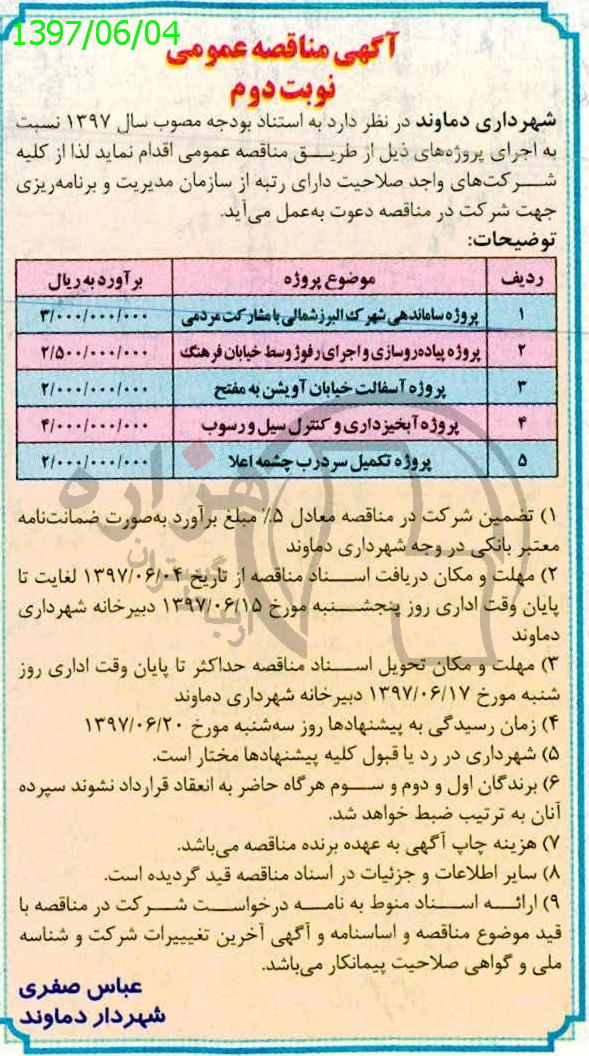 1397/06/04
آگهی مناقصه عمومی
نوبت دوم
شهرداری دماوند در نظر دارد به استناد بودجه مصوب سال ۱۳۹۷ نسبت
به اجرای پروژه‌های ذیل از طریـــق مناقصه عمومی اقدام نماید لذا از کلیه
شـــرکت‌های واجد صلاحیت دارای رتبه از سازمان مدیریت و برنامه‌ریزی
جهت شرکت در مناقصه دعوت به‌عمل می‌آید.
توضیحات:
ردیف موضوع پروژه برآورد به ریال
۱ پروژه ساماندهی شهرک البرز شمالی با مشارکت مردمی ۳/۰۰۰/۰۰۰/۰۰۰
۲ پروژه پیاده‌روسازی و اجرای رفوژ وسط خیابان فرهنگ ۲/۵۰۰/۰۰۰/۰۰۰
۳ پروژه آسفالت خیابان آویشن به مفتح ۲/۰۰۰/۰۰۰/۰۰۰
۴ پروژه آبخیزداری و کنترل سیل و رسوب ۴/۰۰۰/۰۰۰/۰۰۰
۵ پروژه تکمیل سردرب چشمه اعلا ۲/۰۰۰/۰۰۰/۰۰۰
۱) تضمین شرکت در مناقصه معادل ۵٪ مبلغ برآورد به‌صورت ضمانت‌نامه
معتبر بانکی در وجه شهرداری دماوند
۲) مهلت و مکان دریافت اســـناد مناقصه از تاریخ ۱۳۹۷/۰۶/۰۴ لغایت تا
پایان وقت اداری روز پنجشـــنبه مورخ ۱۳۹۷/۰۶/۱۵ دبیرخانه شهرداری
دماوند
۳) مهلت و مکان تحویل اســـناد مناقصه حداکثر تا پایان وقت اداری روز
شنبه مورخ ۱۳۹۷/۰۶/۱۷ دبیرخانه شهرداری دماوند
۴) زمان رسیدگی به پیشنهادها روز سه‌شنبه مورخ ۱۳۹۷/۰۶/۲۰
۵) شهرداری در رد یا قبول کلیه پیشنهادها مختار است.
۶) برندگان اول و دوم و ســـوم هرگاه حاضر به انعقاد قرارداد نشوند سپرده
آنان به ترتیب ضبط خواهد شد.
۷) هزینه چاپ آگهی به عهده برنده مناقصه می‌باشد.
۸) سایر اطلاعات و جزئیات در اسناد مناقصه قید گردیده است.
۹) ارائـــه اســـناد منوط به نامـــه درخواســـت شـــرکت در مناقصه با
قید موضوع مناقصه و اساسنامه و آگهی آخرین تغیییرات شرکت و شناسه
ملی و گواهی صلاحیت پیمانکار می‌باشد.
عباس صفری
شهردار دماوند
هزاره